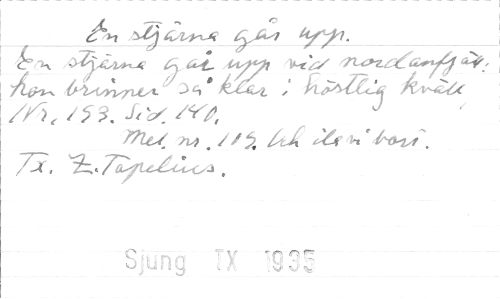 En stjärna går upp.
En stjärna går upp vid nordanfjäll,
hon brinner så klar i höstlig kväll,
Nr. 193. Sid. 140.
Mel. nr. 109. Och ila vi bort.
Tx. Z. Topelius.
Sjung IX 1935